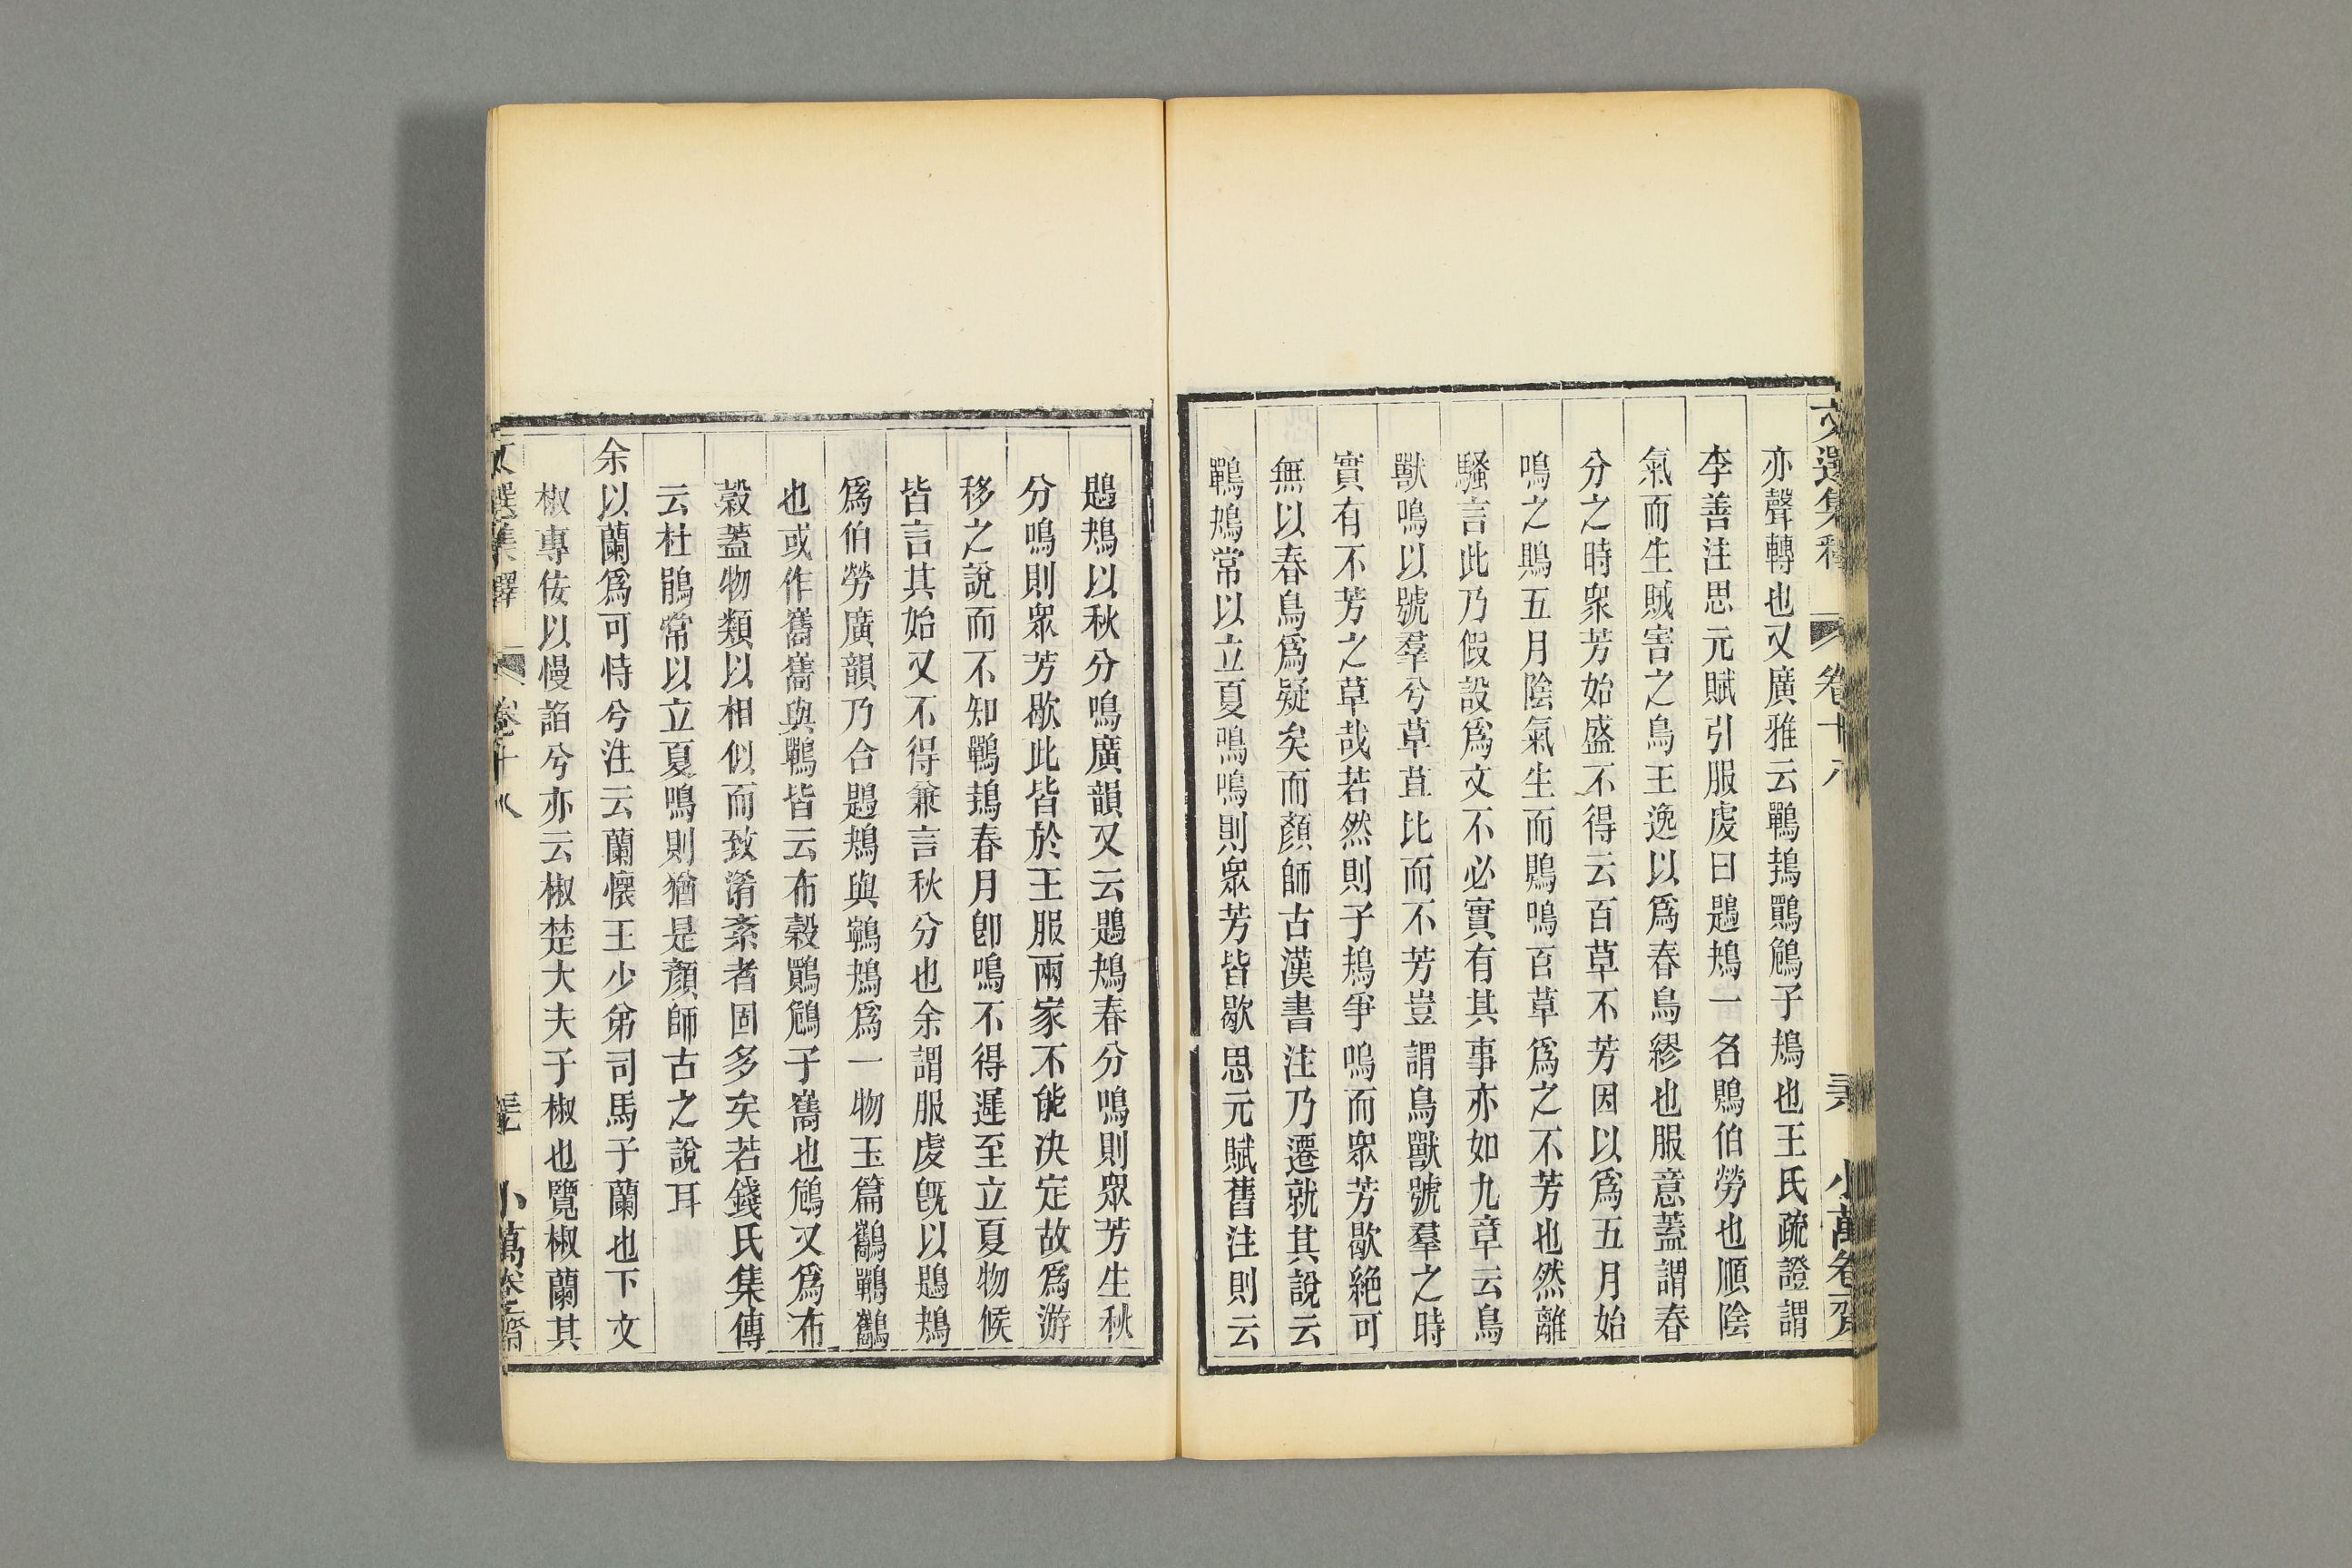 亦聲轉也又廣雅云鷤䳏鷶鵤子鴂也王氏疏證謂
李善注思元賦引服虔曰鶗鴂一名鵙伯勞也順陰
氣而生賊害之鳥王逸以爲春鳥繆也服意蓋謂春
分之時衆芳始盛不得云百草不芳因以爲五月始
鳴之鵙五月陰氣生而鵙鳴百草爲之不芳也然離
騷言此乃假設爲文不必實有其事亦如九章云鳥
獸鳴以號羣兮草苴比而不芳豈謂鳥獸號羣之時
實有不芳之草哉若然則子鴂爭鳴而眾芳歇絶可
無以春鳥爲疑矣而顏師古漢書注乃遷就其說云
鷤鴂常以立夏鳴鳴則眾芳皆歇思元賦舊注則云
鶗鴂以秋分鳴廣韻又云鶗鴂春分鳴則眾芳生秋
分鳴則眾芳歇此皆於王服兩家不能決定故爲游
移之說而不知鷤䳏春月卽鳴不得遲至立夏物候
皆言其始又不得兼言秋分也余謂服虔旣以鶗鴂
爲伯勞廣韻乃合鶗鴂與鷤鴂爲一物玉篇鸛鷤鸛
也或作巂巂與鷤皆云布穀鷶鵤子巂也鵤又爲布
穀蓋物類以相似而致淆紊者固多矣若錢氏集傳
云杜鵑常以立夏鳴則猶是顏師古之說耳
余以蘭爲可恃兮注云蘭懷王少弟司馬子蘭也下文
椒專佞以慢諂兮亦云椒楚大夫子椒也覽椒蘭其
文選集釋 卷十八 小萬卷齋